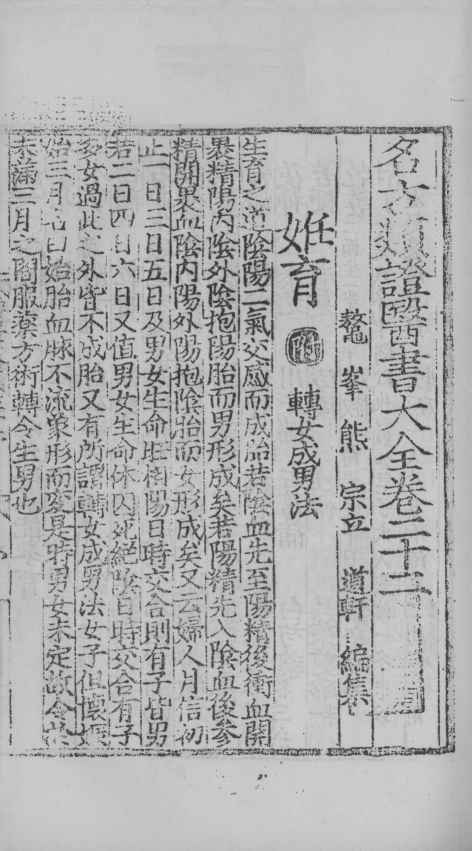 名方類證醫書大全卷二十二
鼇峯熊宗立道軒編集
姙育 附 轉女成男法
生育之道陰陽二氣交感而成胎若陰血先至陽精後衝血開
裹精陽內陰外陰抱陽胎而男形成矣若陽精先入陰血後參
精開裹血陰內陽外陽抱陰胎而女形成矣又云婦人月信初
止一日三日五日及男女生命旺相陽日時交合則有子皆男
若二日四日六日又値男女生命休囚死絕陰日時交合有子
多女過此之外皆不成胎又有所謂轉女成男法女子但懷姙
始三月名曰始胎血脉不流象形而變是時男女未定故令於
未滿三月之間服藥方術轉令生男也